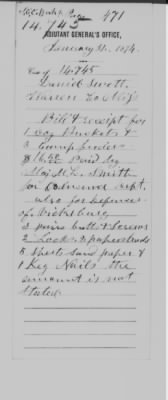 471
14.745
ADJUTANT GENERAL'S OFFICE,
January 31, 1874.
Copy 14.745
Daniel Swett.
Warren Co Miss
Bill & receipt for
1 doz Buckets &
3 Camp
Paid by
Maj M. L. Smith
for Ordnance dept.
also for defences
of Vicksburg
2 pairs butts & Screws
2 Locks, 3 papers brads
5 sheets sand paper &
1 Keg Nails the
amount is not
stated.